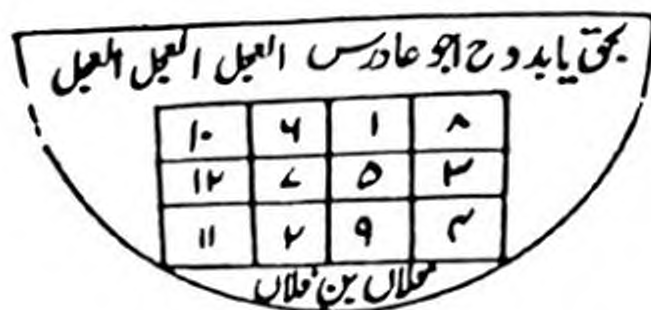 بحق یا بدوح اجو عادرس العجل العجل العجل
۸ ۱ ۶ ۱۰
۳ ۵ ۷ ۱۲
۴ ۹ ۲ ۱۱
فلاں بن فلاں